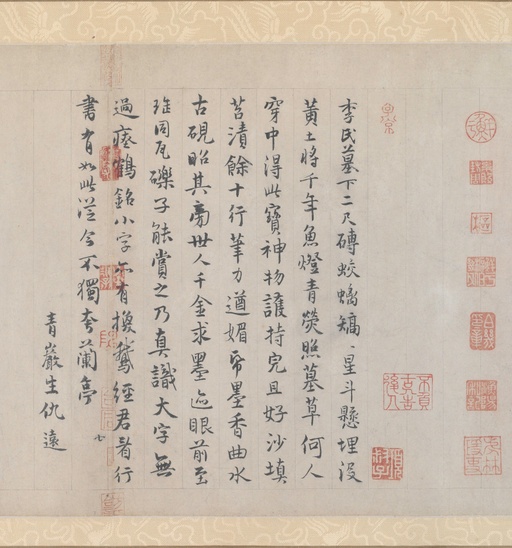 李氏墓下二尺磚蛟螭矯〻星斗懸埋沒
黃土將千年魚燈青熒照墓草何人
穿中得此寶神物護持完且好沙填
苔漬餘十行筆力遒媚帋墨香曲水
古硯昭其旁世人千金求墨迹眼前至
珎同瓦礫子能賞之乃真識大字無
過瘞鶴銘小字亦有換鵞經君看行
書有如此從今不獨夸蘭亭
青巖生仇遠